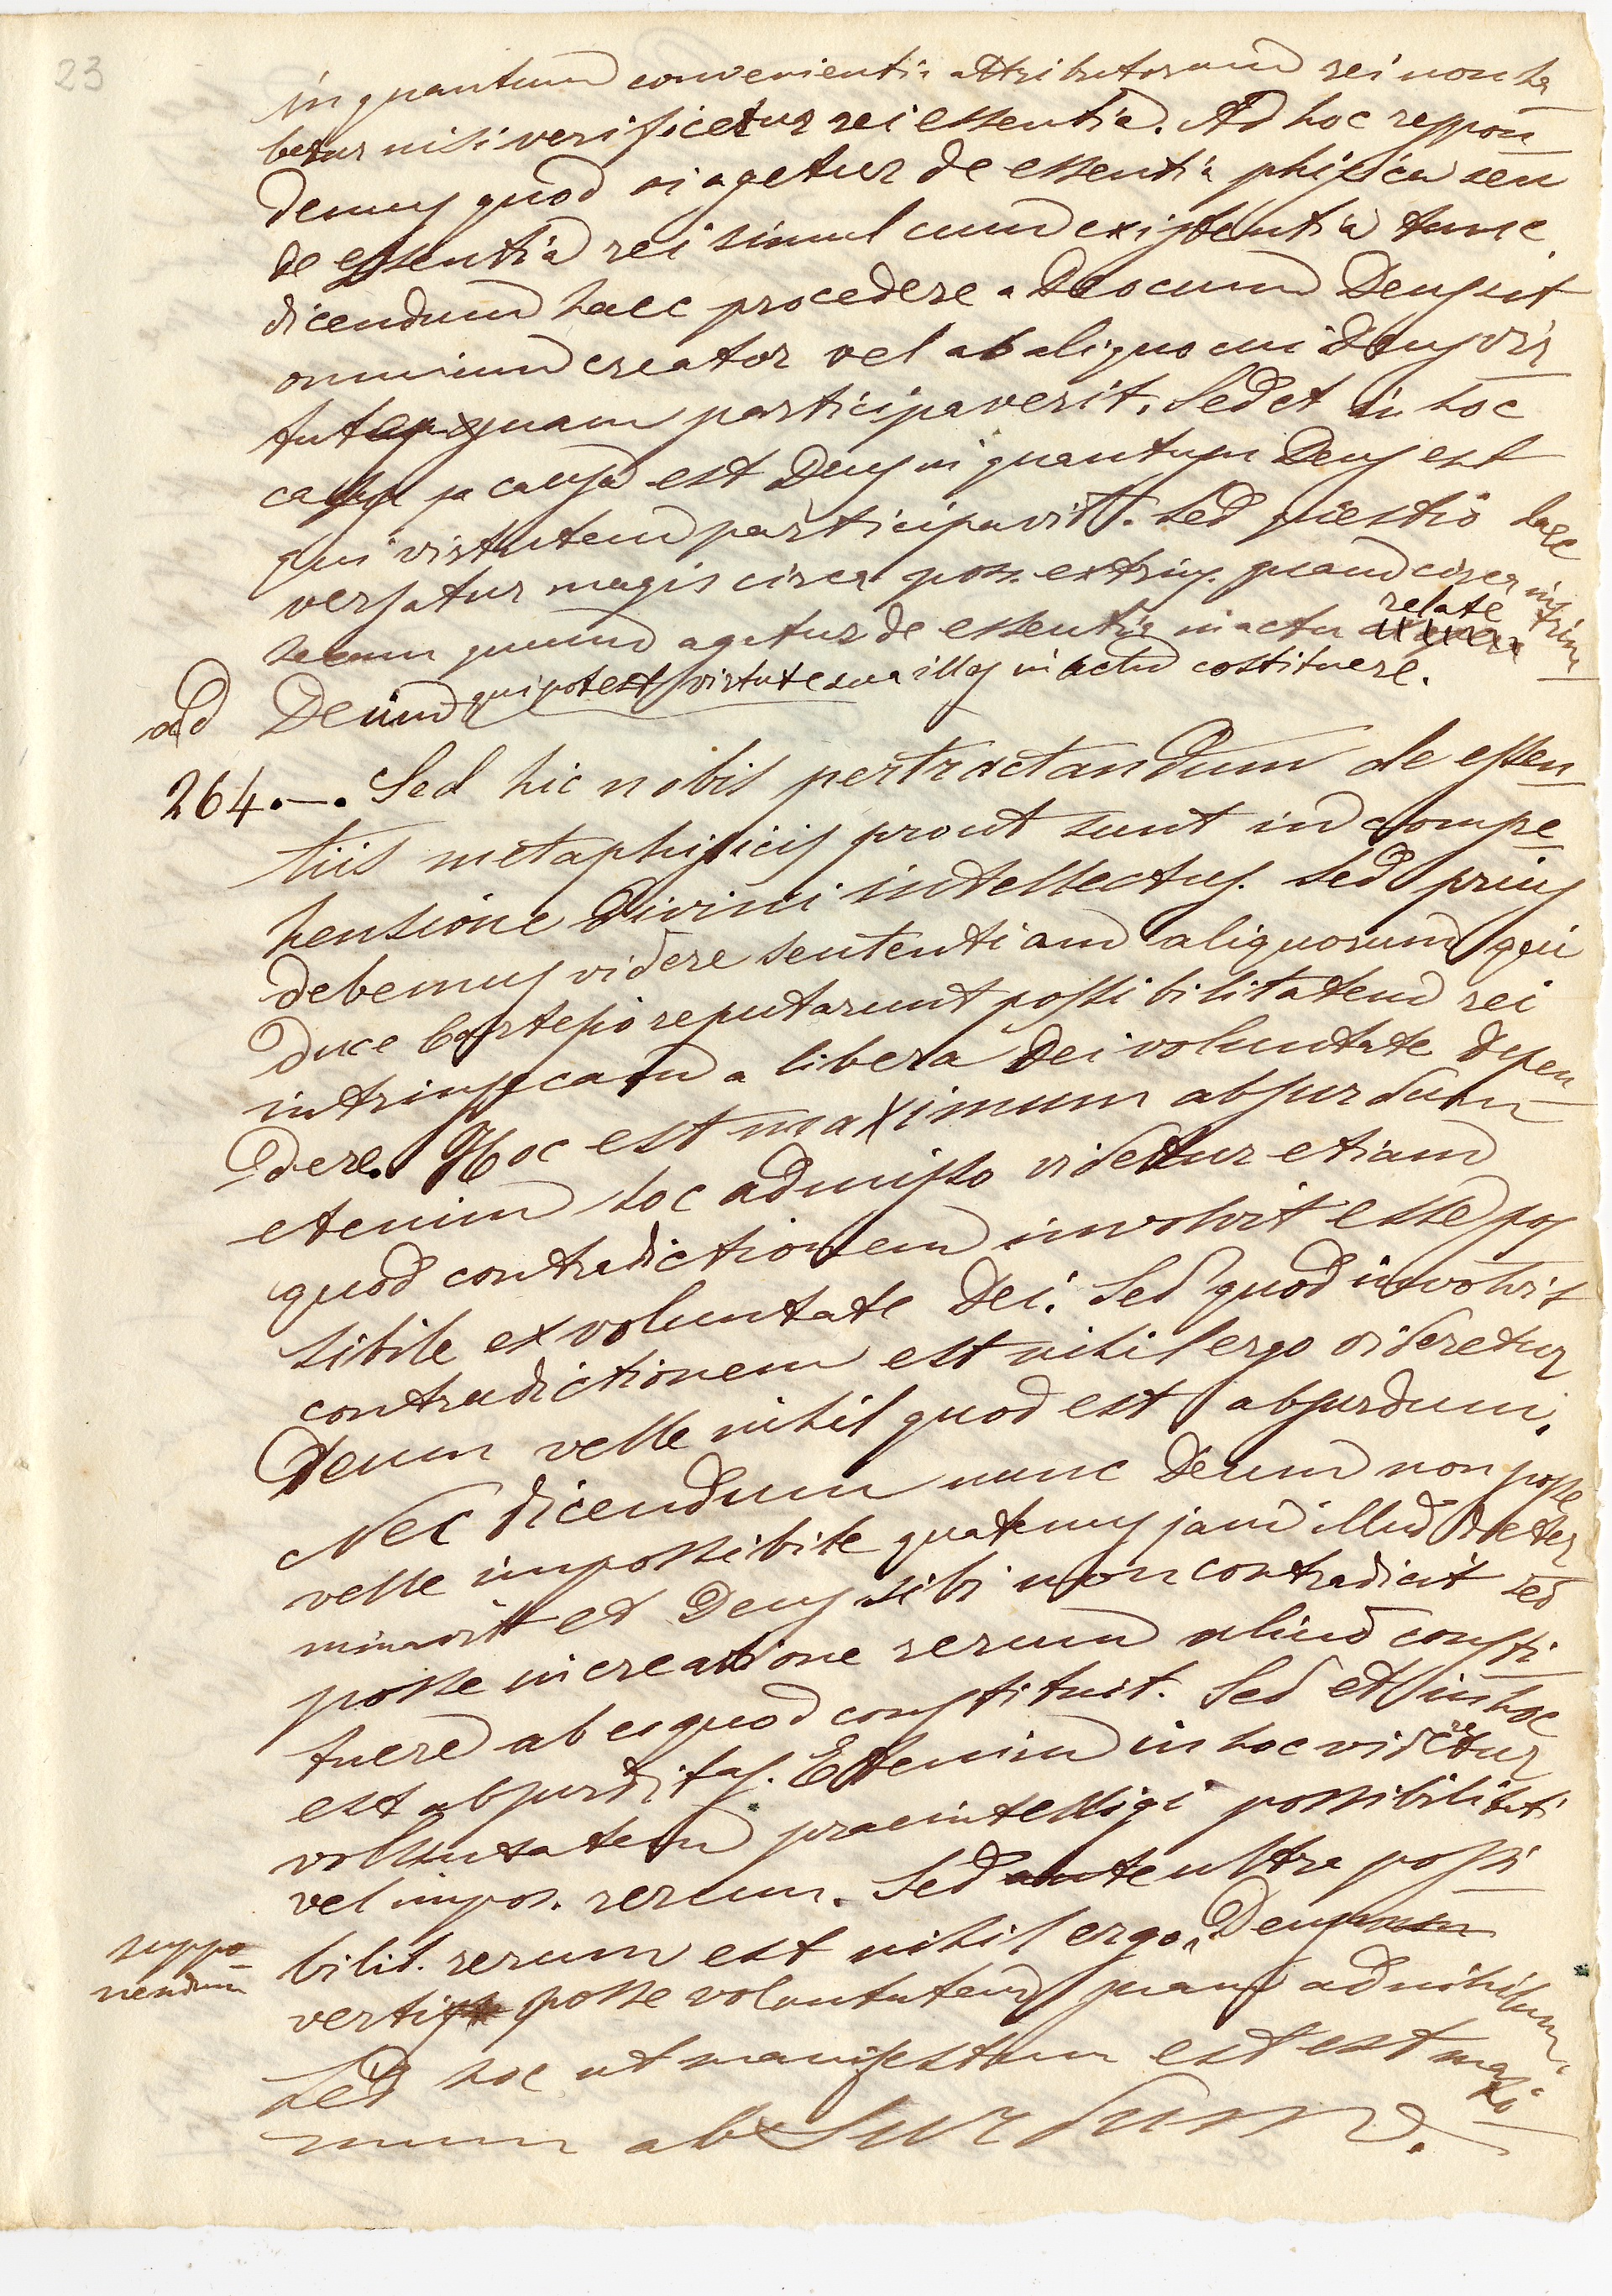 23
in quantum convenientia attributorum rei non ha
betur nisi verificetur rei essentia. Ad hoc respon
demus quod si agetur de essentia phisica seu
de essentia rei simul cum existentia tunc
dicendum haec procedere a Deo cum Deus sit
omnium creator vel ab aliquo cui Deus vir
tutem quam participaverit. Sed et in hoc
casu causa est Deus in quantum Deus est
qui virtutem participavit. Sed questio haec
versatur magis circa pos. extrins. quam circa intrin
secam quum agatur de essentia in actu relate
ad Deum qui potest virtute sua illas in actum costituere.
264.—. Sed hic nobis pertractandum de essen
tiis metaphisicis prout sunt in compre
hensione divini intellectus. Sed prius
debemus videre sententiam aliquorum qui
duce Cartesio reputarunt possibilitatem rei
intrinsecam a libera Dei voluntate depen
dere. Hoc est maximum absurdum
etenim hoc admisso videtur etiam
quod contradictionem involvit esse pos
sibile ex voluntate Dei. Sed quod involvit
contradictionem est nihil ergo videretur
Deum velle nihil quod est absurdum.
Nec dicendum nunc Deum non posse
velle impossibile quatenus jam illud deter
minavit et Deus sibi non contradicit sed
posse in creatione rerum aliud consti
tuere ab eo quod constituit. Sed et in hoc
est absurditas. Etenim in hoc videretur
voluntatem praeintelligi possibilitati
vel impos. rerum. Sed ante ultra possi
bilit. rerum est nihil ergo Deus non
suppo
nendum
verti posse voluntatem quam ad nihilum.
Sed hoc ut manifestum est est maxi
mum absurdum.